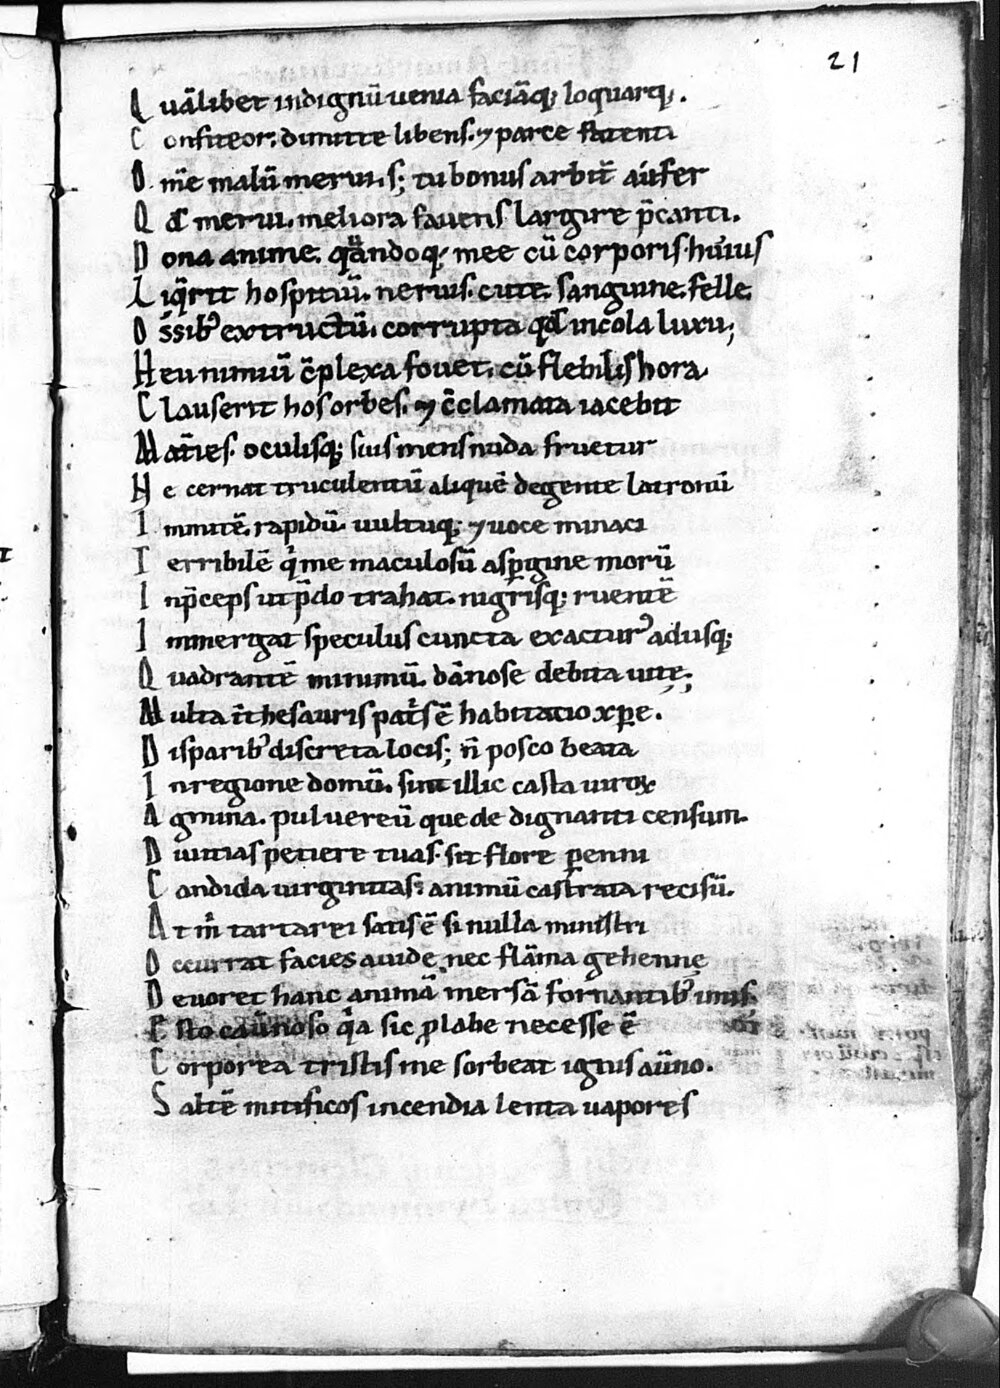 21
Q uālibet indignū uenia faciāq; loquarq;.
C onfiteor. dimitte libens. ⁊ parce fatenti
O m̄e malū merui. s; tu bonus arbit̄ aufer
Q d̄ merui. meliora fauens largire p̄canti.
D ona anime. quandoq; mee cū corporis huius
L iq̄rit hospitiū. neruis. cute. sanguine. felle.
O ssib; extructū. corrupta qd̄ incola luxu;
H eu nimiū c̄plexa fouet. cū flebilis hora
C lauserit hos orbes. ⁊ c̄clamata iacebit
M at̄ies. oculisq; suis mens nuda fruetur
N e cernat truculentū aliquē de gente latronū
I nmitē. rapidū. uultuq; ⁊ uoce minaci
T erribilē qͥ me maculosū asp̲gine morū
I np̄ceps ut p̄do trahat. nigrisq; ruentē
I nmergat specubus cuncta exacturꝰ adusq;
Q uadrantē minimū. dānose debita uitę;
M ulta ī thesauris pat̄s ē habitatio xp̄e.
D isparib; discreta locis; n̄ posco beata
I n regione domū. sint illic casta uiroꝝ
A gmina. puluereū que de dignanti censum.
D iuitias petiere tuas. sit flore p̲enni
C andida uirginitas. animū castrata recisū.
A t m̄ tartarei satis ē si nulla ministri
O ccurrat facies auide nec flāma gehennę
D euoret hanc animā mersā fornacib; imis.
E sto cau̅noso qͥa sic p̲ labe necesse ē
C orporea tristis me sorbeat ignis au̅no.
S altē mitificos incendia lenta uapores